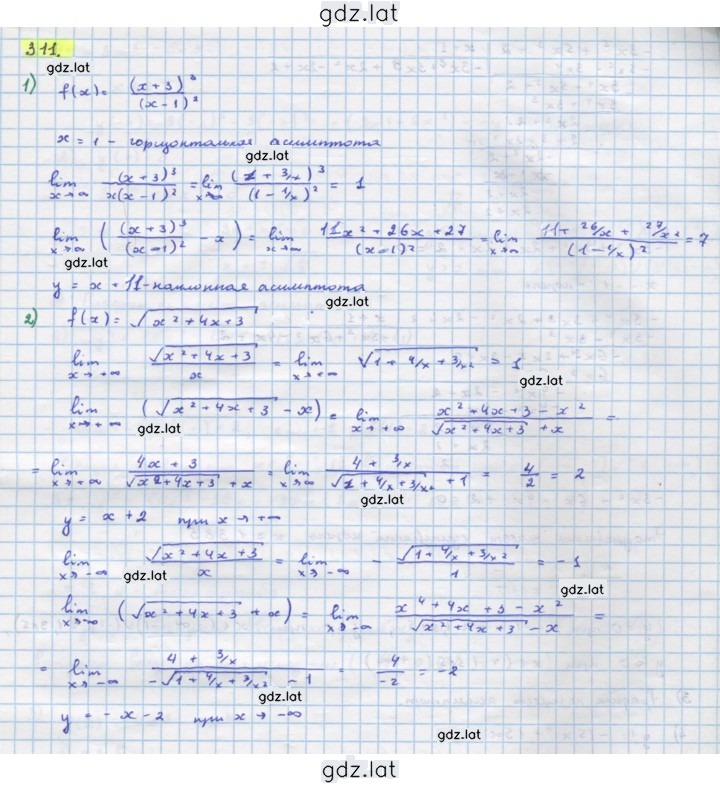 gdz.lat
311.
gdz.lat
1) f(x) = (x+3)³/(x-1)²
x = 1 - горизонтальная асимптота
gdz.lat
lim x→∞ (x+3)³/x(x-1)² = lim x→∞ (1 + 3/x)³/(1 - 1/x)² = 1
lim x→∞ ((x+3)³/(x-1)² - x) = lim x→∞ 11x² + 26x + 27/(x-1)² = lim x→∞ 11 + 26/x + 27/x²/(1 - 1/x)² = 7
gdz.lat
y = x + 11 - наклонная асимптота
gdz.lat
2) f(x) = √x² + 4x + 3
lim x→+∞ √x² + 4x + 3/x = lim x→+∞ √1 + 4/x + 3/x² = 1
gdz.lat
lim x→+∞ (√x² + 4x + 3 - x) = lim x→+∞ x² + 4x + 3 - x²/√x² + 4x + 3 + x =
gdz.lat
= lim x→+∞ 4x + 3/√x² + 4x + 3 + x = lim x→∞ 4 + 3/x/√1 + 4/x + 3/x² + 1 = 4/2 = 2
gdz.lat
y = x + 2 при x → +∞
lim x→-∞ √x² + 4x + 3/x = lim x→-∞ - √1 + 4/x + 3/x²/1 = -1
gdz.lat
gdz.lat
lim x→-∞ (√x² + 4x + 3 + x) = lim x→-∞ x⁴ + 4x + 3 - x²/√x² + 4x + 3 - x =
= lim x→-∞ 4 + 3/x/-√1 + 4/x + 3/x² - 1 = 4/-2 = -2
gdz.lat
y = -x - 2 при x → -∞
gdz.lat
gdz.lat